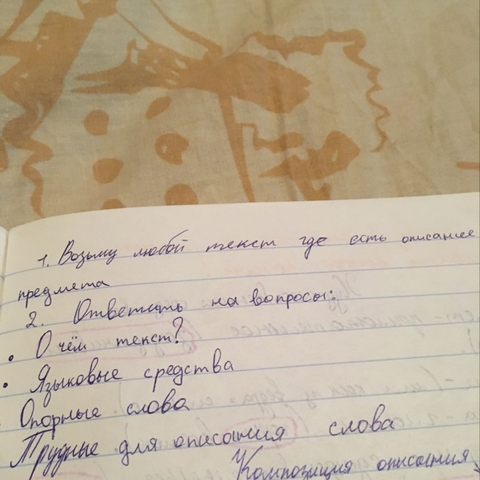 1. Возьму любой текст где есть описание
предмета
2. Ответить на вопросы:
• О чём текст?
• Языковые средства
Опорные слова
Трудные для описания слова
Композиция описания